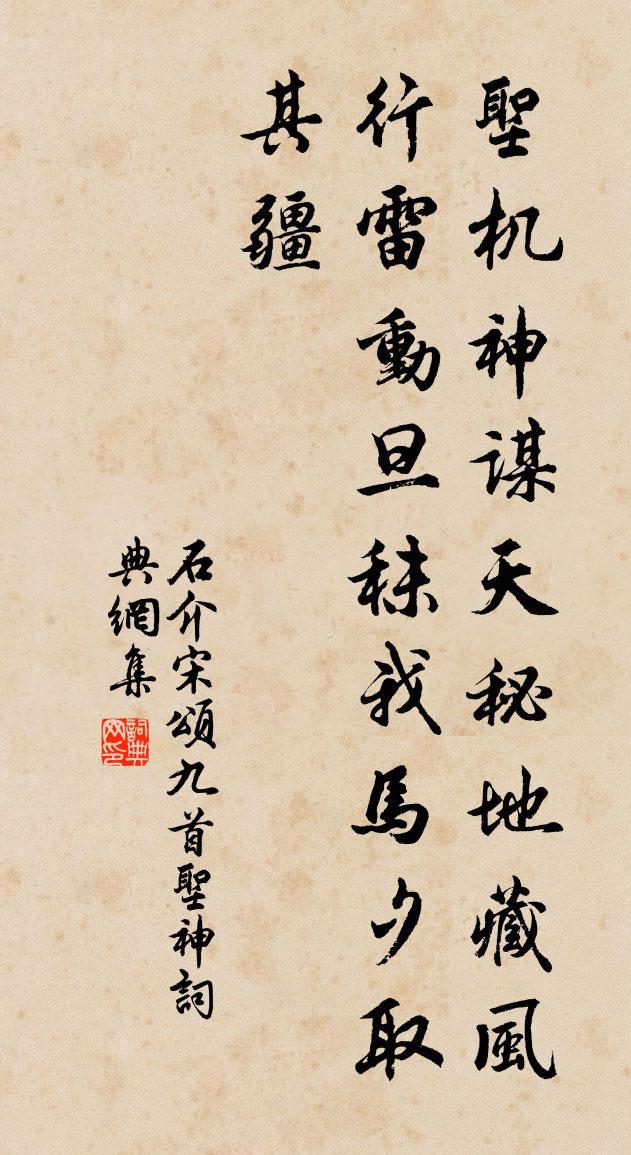 聖机神謀天秘地藏風
行雷動旦秣我馬夕取
其疆
石介宋頌九首聖神詞
典網集
詞典
网印